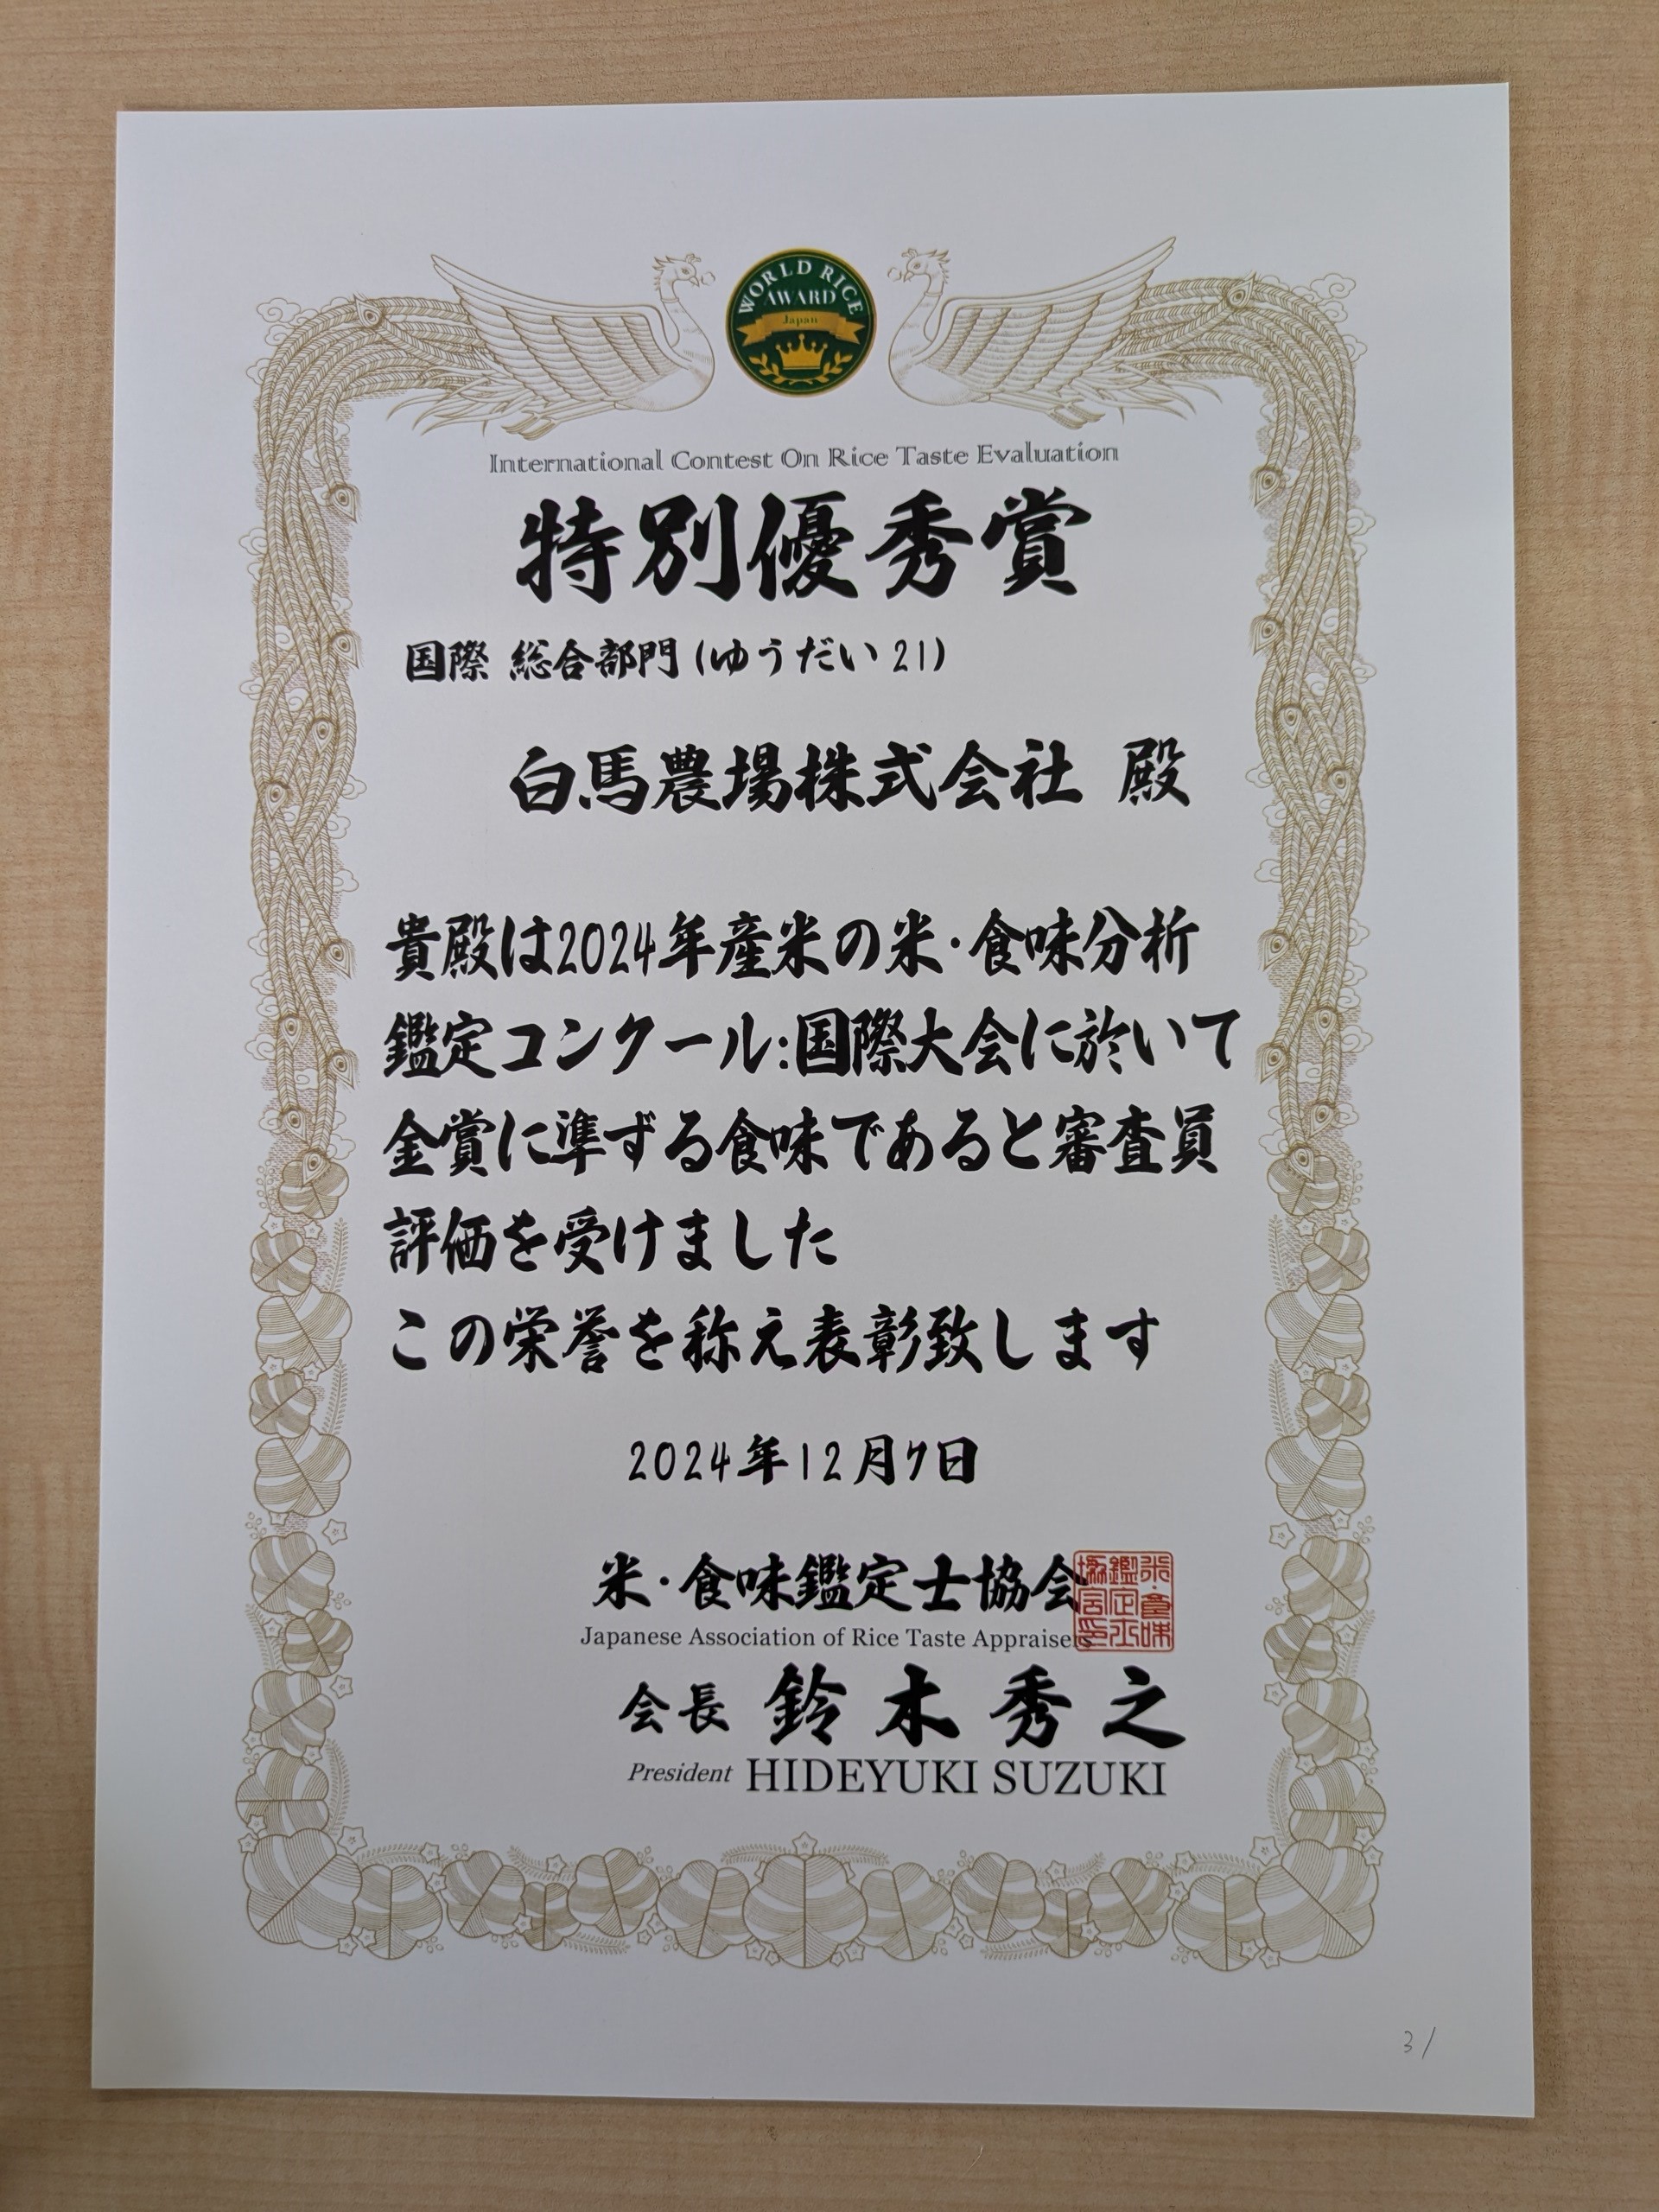 WORLD RICE
AWARD
Japan
International Contest On Rice Taste Evaluation
特別優秀賞
国際 総合部門(ゆうだい21)
白馬農場株式会社 殿
貴殿は2024年産米の米・食味分析
鑑定コンクール:国際大会に於いて
金賞に準ずる食味であると審査員
評価を受けました
この栄誉を称え表彰致します
2024年12月7日
米・食味鑑定士協会
米・食味鑑定士協会印
Japanese Association of Rice Taste Appraisers
会長 鈴木秀之
President HIDEYUKI SUZUKI
31